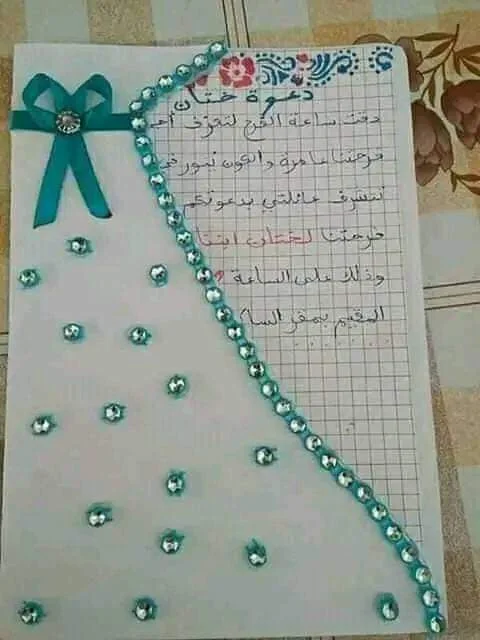 دعوة ختان
دقت ساعة الفرح لتعزف
فرحتنا عامرة والعون
تتشرف عائلتي بدعوتكم
فرحتنا لختان ابننا
وذلك على الساعة
المقيم بمقر السا